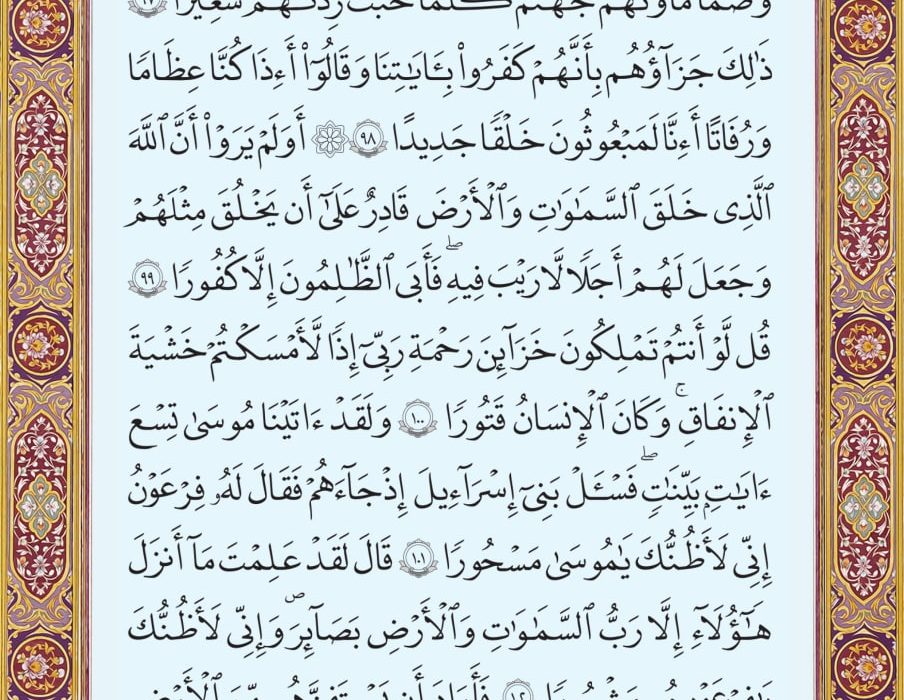 وَصُمًّا مَّأْوَىٰهُمْ جَهَنَّمُ كُلَّمَا خَبَتْ زِدْنَٰهُمْ سَعِيرًا ٩٧
ذَٰلِكَ جَزَآؤُهُم بِأَنَّهُمْ كَفَرُوا۟ بِـَٔايَٰتِنَا وَقَالُوٓا۟ أَءِذَا كُنَّا عِظَٰمًا
وَرُفَٰتًا أَءِنَّا لَمَبْعُوثُونَ خَلْقًا جَدِيدًا ٩٨ ۞ أَوَلَمْ يَرَوْا۟ أَنَّ ٱللَّهَ
ٱلَّذِى خَلَقَ ٱلسَّمَٰوَٰتِ وَٱلْأَرْضَ قَادِرٌ عَلَىٰٓ أَن يَخْلُقَ مِثْلَهُمْ
وَجَعَلَ لَهُمْ أَجَلًا لَّا رَيْبَ فِيهِ ۖ فَأَبَى ٱلظَّٰلِمُونَ إِلَّا كُفُورًا ٩٩
قُل لَّوْ أَنتُمْ تَمْلِكُونَ خَزَآئِنَ رَحْمَةِ رَبِّىٓ إِذًا لَّأَمْسَكْتُمْ خَشْيَةَ
ٱلْإِنفَاقِ ۚ وَكَانَ ٱلْإِنسَٰنُ قَتُورًا ١٠٠ وَلَقَدْ ءَاتَيْنَا مُوسَىٰ تِسْعَ
ءَايَٰتٍۭ بَيِّنَٰتٍ ۖ فَسْـَٔلْ بَنِىٓ إِسْرَٰٓءِيلَ إِذْ جَآءَهُمْ فَقَالَ لَهُۥ فِرْعَوْنُ
إِنِّى لَأَظُنُّكَ يَٰمُوسَىٰ مَسْحُورًا ١٠١ قَالَ لَقَدْ عَلِمْتَ مَآ أَنزَلَ
هَٰٓؤُلَآءِ إِلَّا رَبُّ ٱلسَّمَٰوَٰتِ وَٱلْأَرْضِ بَصَآئِرَ ۖ وَإِنِّى لَأَظُنُّكَ
يَٰفِرْعَوْنُ مَثْبُورًا ١٠٢ فَأَرَادَ أَن يَسْتَفِزَّهُم مِّنَ ٱلْأَرْضِ